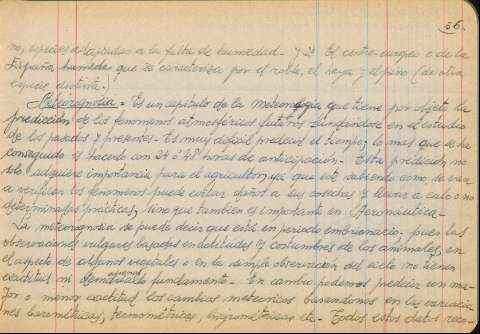 56.
no, especies adaptadas a la falta de humedad. Y 2º El centro europeo o de la
España humeda que se caracteriza por el roble, el haya y el pino (de otra
especie distinta.)
Meteorognosia = Es un capítulo de la meteorología que tiene por objeto la
predicción de los fenomenos atmosféricos futuros fundandose en el estudio
de los pasados y presentes. Es muy dificil predecir el tiempo, lo mas que se ha
conseguido es hacerlo con 24 ó 48 horas de anticipación. Esta predicción no
solo adquiere importancia para el agricultor, ya que este sabiendo como se van
a verificar los fenomenos puede evitar daños a sus cosechas y llevar a cabo o no
determinadas prácticas, sino que tambien es importante en Aeronáutica.
La meteorognosia se puede decir que está en periodo embrionario. pues las
observaciones vulgares basadas en actitudes y costumbres de los animales, en
el aspecto de algunos vegetales o en la simple observación del cielo no tienen
exactitud ni fundamento. En cambio podemos predecir con ma-
yor o menor exactitud los cambios meteoricos basandonos en las variacio-
nes barométricas, termométricas, higrométricas etc. Todos estos datos reco-